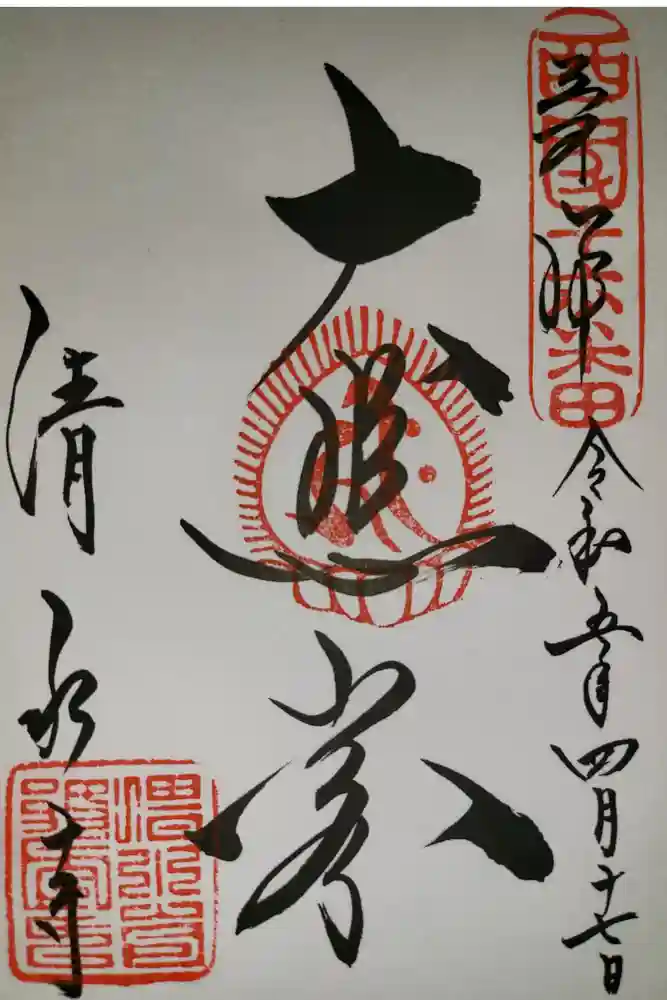 西国十六番
奉拝
令和五年四月十七日
大悲閣
清水寺